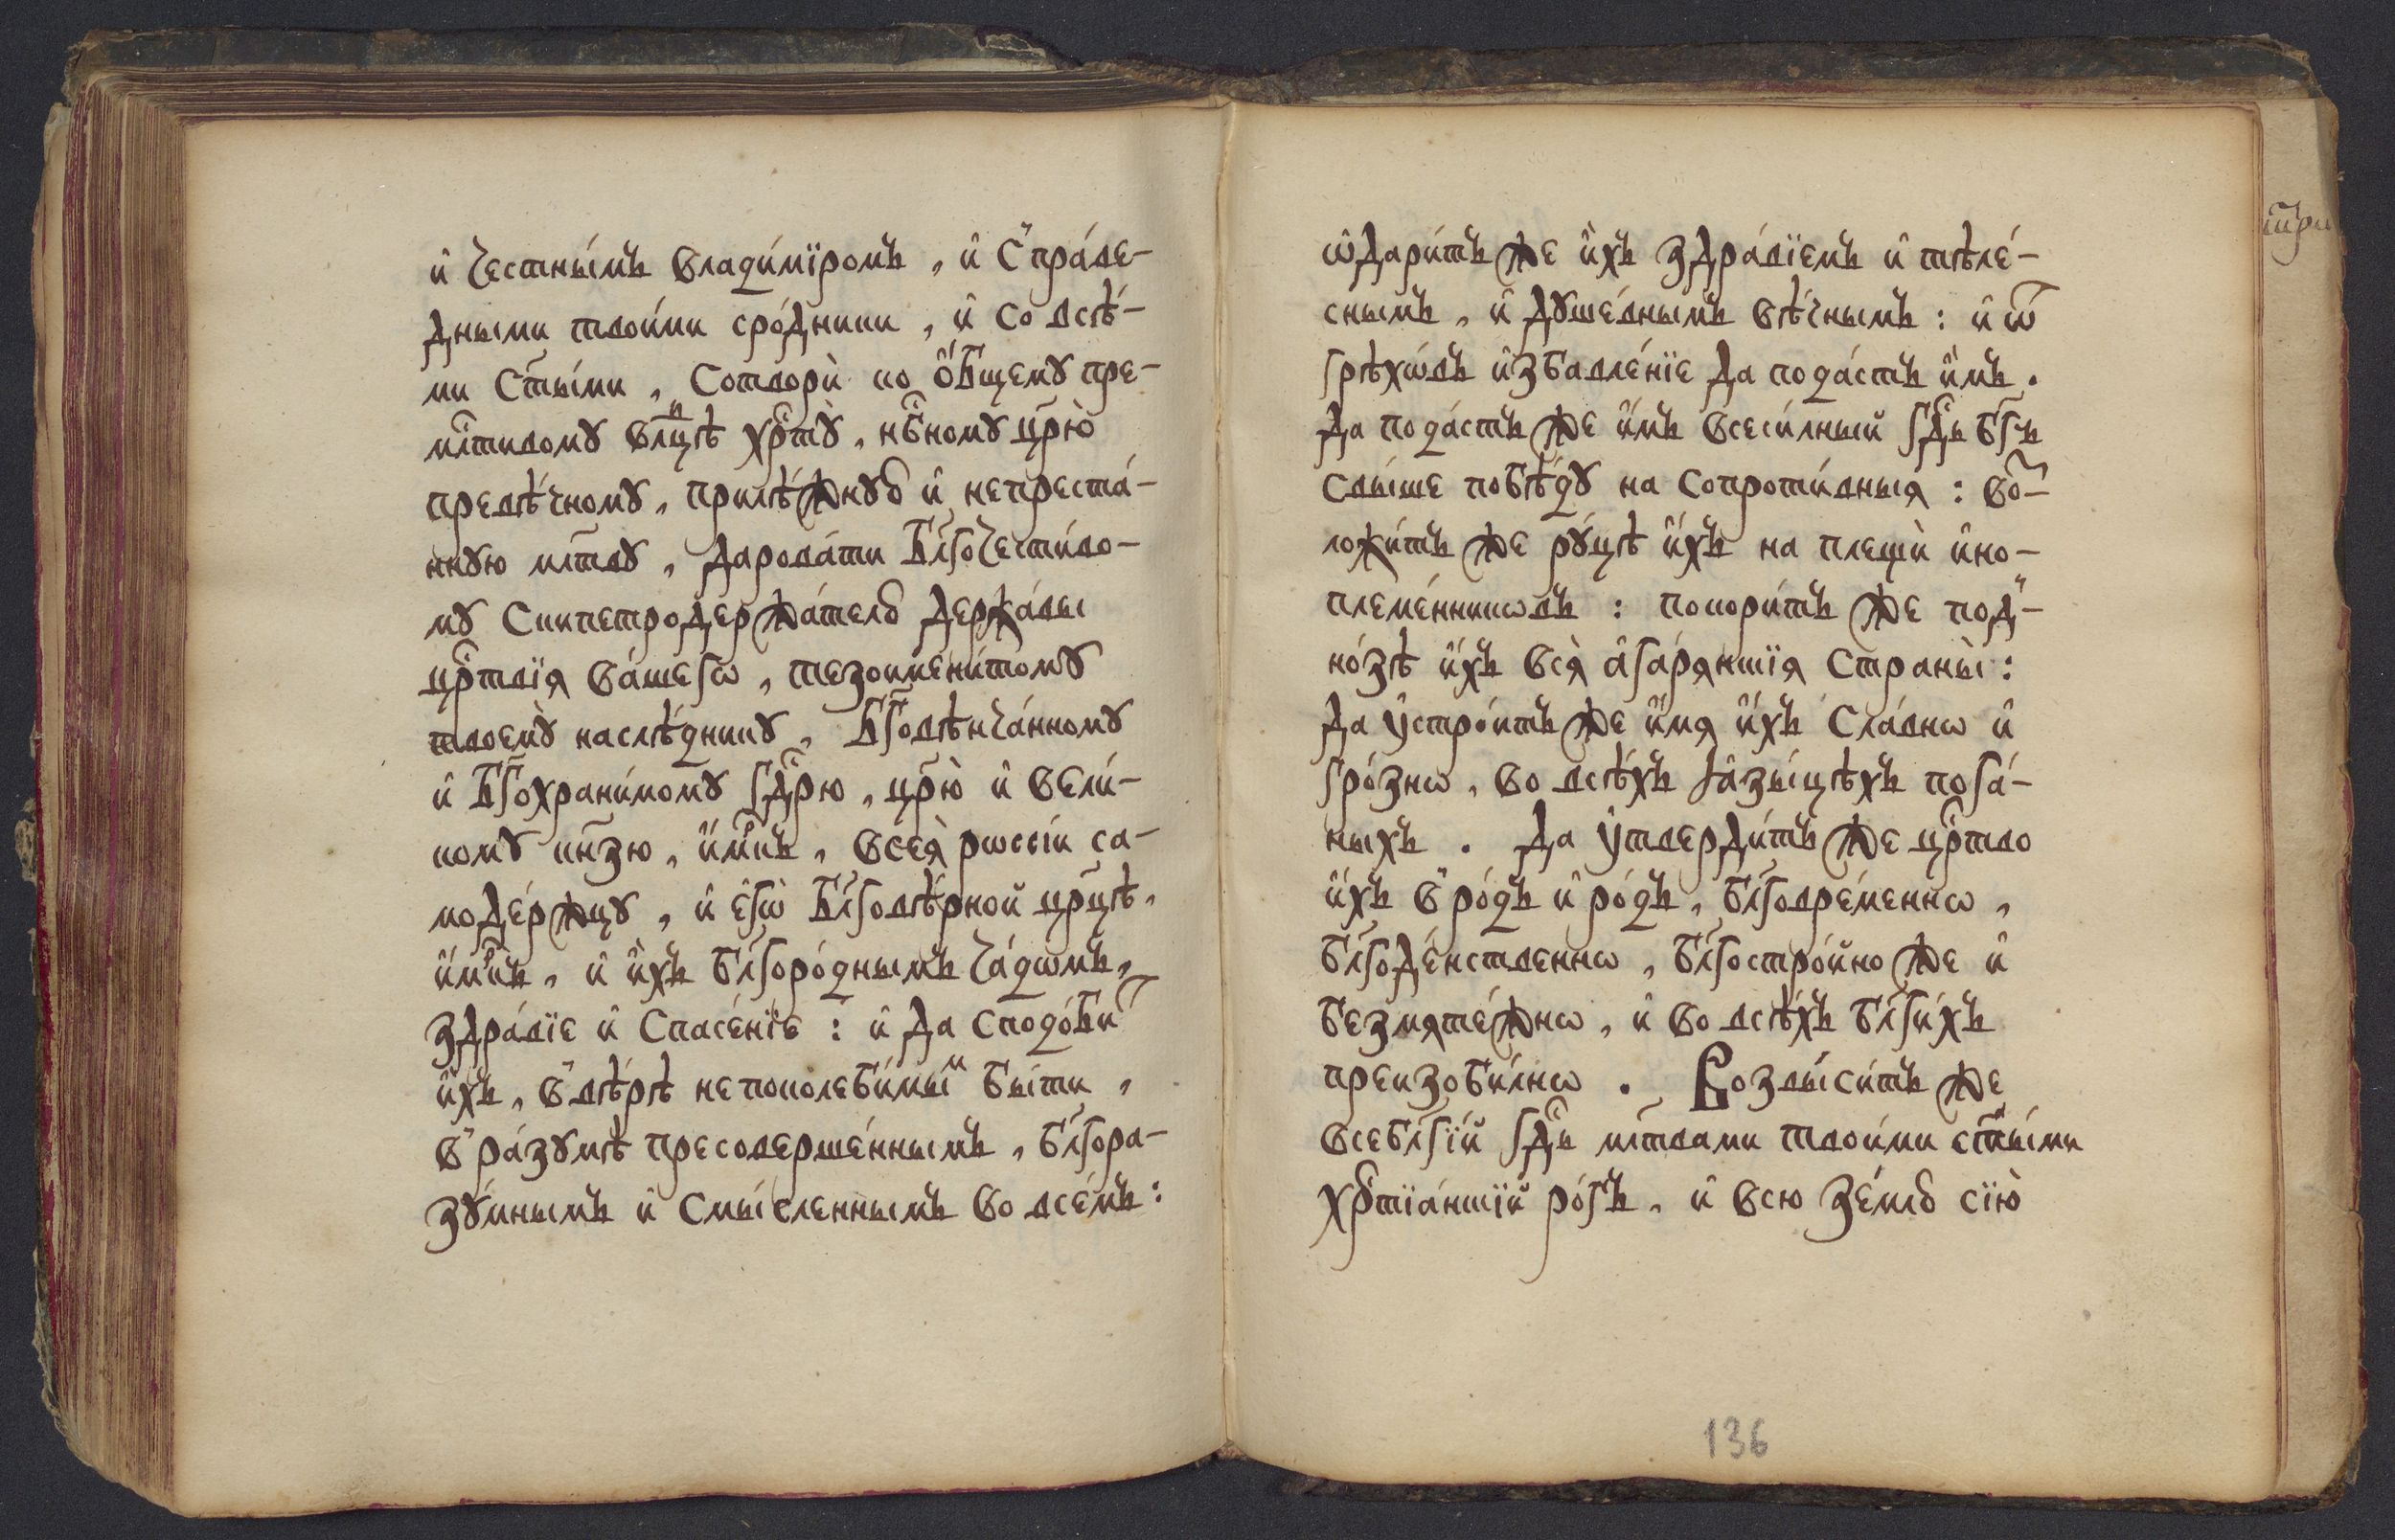 и҆ честны́мъ влади́мїромъ , и҆ с̾ пра́ве-
дными твои́ми сро́дники , и҆ со всѣ́-
ми ст҃ы́ми , сотворѝ ко ѻ҆́бщемꙋ пре-
млⷭ҇тивомꙋ влⷣцѣ хрⷭ҇тꙋ̀ , нбⷭ҇номꙋ цр҃ю̀
превѣ́чномꙋ , прилѣ́жнꙋю и҆ непреста́-
ннꙋю мл҃твꙋ , дарова́ти бл҃гочести́во-
мꙋ скипетродержа́телю держа́вы
црⷭ҇твїѧ ва́шегѡ , тезоимени́томꙋ
твоемꙋ̀ наслѣ́дникꙋ , бг҃овѣнча́нномꙋ
и҆ бг҃охрани́момꙋ гдⷭ҇рю , цр҃ю̀ и҆ вели́-
комꙋ кн҃зю , и҆́мⷬ҇къ , всеѧ̀ рѡссі́и са-
моде́ржцꙋ , и҆ є҆гѡ̀ бл҃говѣ́рной цр҃цѣ ,
и҆́мⷬ҇къ , и҆ и҆́хъ бл҃горо́днымъ ча́дѡмъ ,
здра́вїе и҆ спасе́нїе : и҆ да сподо́биⷮ
и҆́хъ , в̾ вѣ́рѣ непоколеби́мыⷨ бы́ти ,
в̾ ра́зꙋмѣ пресоверше́ннымъ , бл҃гора-
зꙋ́мнымъ и҆ смы́сленнымъ во все́мъ :
ѡ҆дари́тъ же и҆́хъ здра́вїемъ и҆ тѣле́-
снымъ , и҆ дꙋше́внымъ вѣ́чнымъ : и҆ ѿ
грѣхѡ́въ и҆збавле́нїе да пода́стъ и҆̀мъ .
да пода́стъ же и҆̀мъ всеси́лный гдⷭ҇ь бг҃ъ
свы́ше побѣ́дꙋ на сопроти́вныѧ : воⷥ-
ложи́тъ же рꙋ́цѣ и҆́хъ на плещѝ и҆но-
племе́нникѡвъ : покори́тъ же под̾-
но́зѣ и҆́хъ всѧ̀ а҆гарѧнскїѧ страны̀ :
да ᲂу҆стро́итъ же и҆́мѧ и҆́хъ сла́внѡ и҆
гро́знѡ , во всѣ́хъ ꙗ҆зы́цѣхъ пога́-
ныхъ . да ᲂу҆тверди́тъ же црⷭ҇тво
и҆́хъ в̾ ро́дъ и҆ ро́дъ , бл҃говре́меннѡ ,
бл҃годе́нственнѡ , бл҃гостро́йно же и҆
безмѧте́жнѡ , и҆ во всѣ́хъ бл҃ги́хъ
преизоби́лнѡ . Возвы́ситъ же
всебл҃гі́й гдⷭ҇ь мл҃твами твои́ми ст҃ы́ми
хрⷭ҇тїа́нскїй ро́гъ , и҆ всю зе́млю сїю̀
136